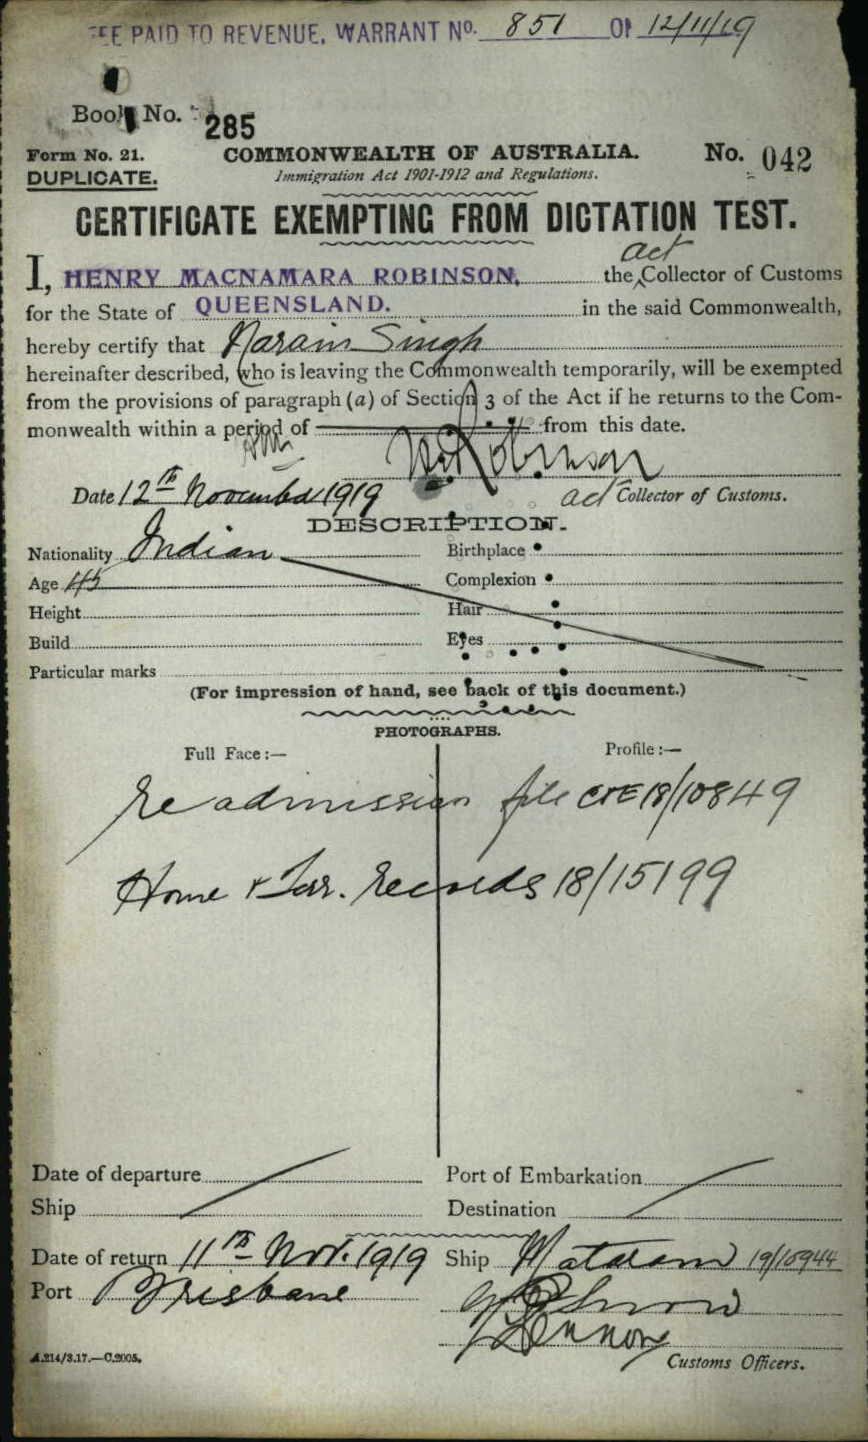 FEE PAID TO REVENUE, WARRANT No. 851 OF 12/11/19
Book No. 285
Form No. 21. COMMONWEALTH OF AUSTRALIA. No. 042
DUPLICATE. Immigration Act 1901-1912 and Regulations.
CERTIFICATE EXEMPTING FROM DICTATION TEST.
act
I, HENRY MACNAMARA ROBINSON, the Collector of Customs
for the State of QUEENSLAND. in the said Commonwealth,
hereby certify that Narain Singh
hereinafter described, who is leaving the Commonwealth temporarily, will be exempted
from the provisions of paragraph (a) of Section 3 of the Act if he returns to the Com-
monwealth within a period of from this date.
Robinson
Date 12th November 1919 act Collector of Customs.
DESCRIPTION.
Nationality Indian Birthplace
Age 45 Complexion
Height Hair
Build Eyes
Particular marks
(For impression of hand, see back of this document.)
PHOTOGRAPHS.
Full Face:— Profile:—
Readmission file CTE 18/10849
Home & Ter. Records 18/15199
Date of departure Port of Embarkation
Ship Destination
Date of return 11th Nov. 1919 Ship Mataram 19/10944
Port Brisbane
Customs Officers.
A.214/3.17.—C.2005.